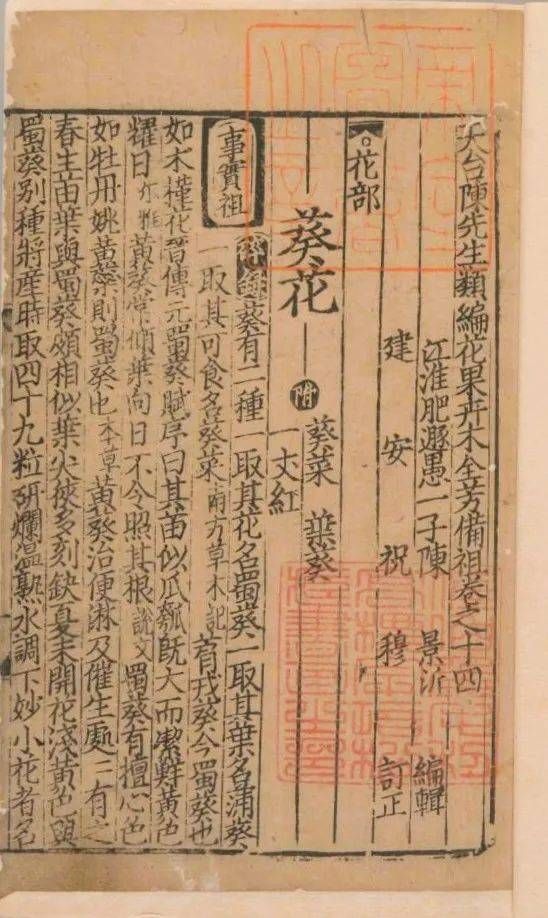 天台陳先生類編花果卉木全芳備祖卷之十四
江淮肥遯愚一子陳 景沂 編輯
建安 祝 穆 訂正
花部
葵花 附 葵菜 蒲葵
一丈紅
事實祖
葵有二種一取其花名蜀葵一取其葉名蒲葵
一取其可食名葵菜南方草木記 菺戎葵今蜀葵也
如木槿花晉傅元蜀葵賦序曰其苗似瓜瓠既大而潔鮮黄色
耀日尔雅黄葵常傾葉向日不令照其根說文蜀葵有擅心色
如牡丹姚黄蘂則蜀葵也本草黄葵治便淋及催生處二有之
春生苗葉與蜀葵頗相似葉尖狹多刻缺夏末開花淺黄色
蜀葵别種將産時取四十九粒研爛温熟水調下妙小花者名